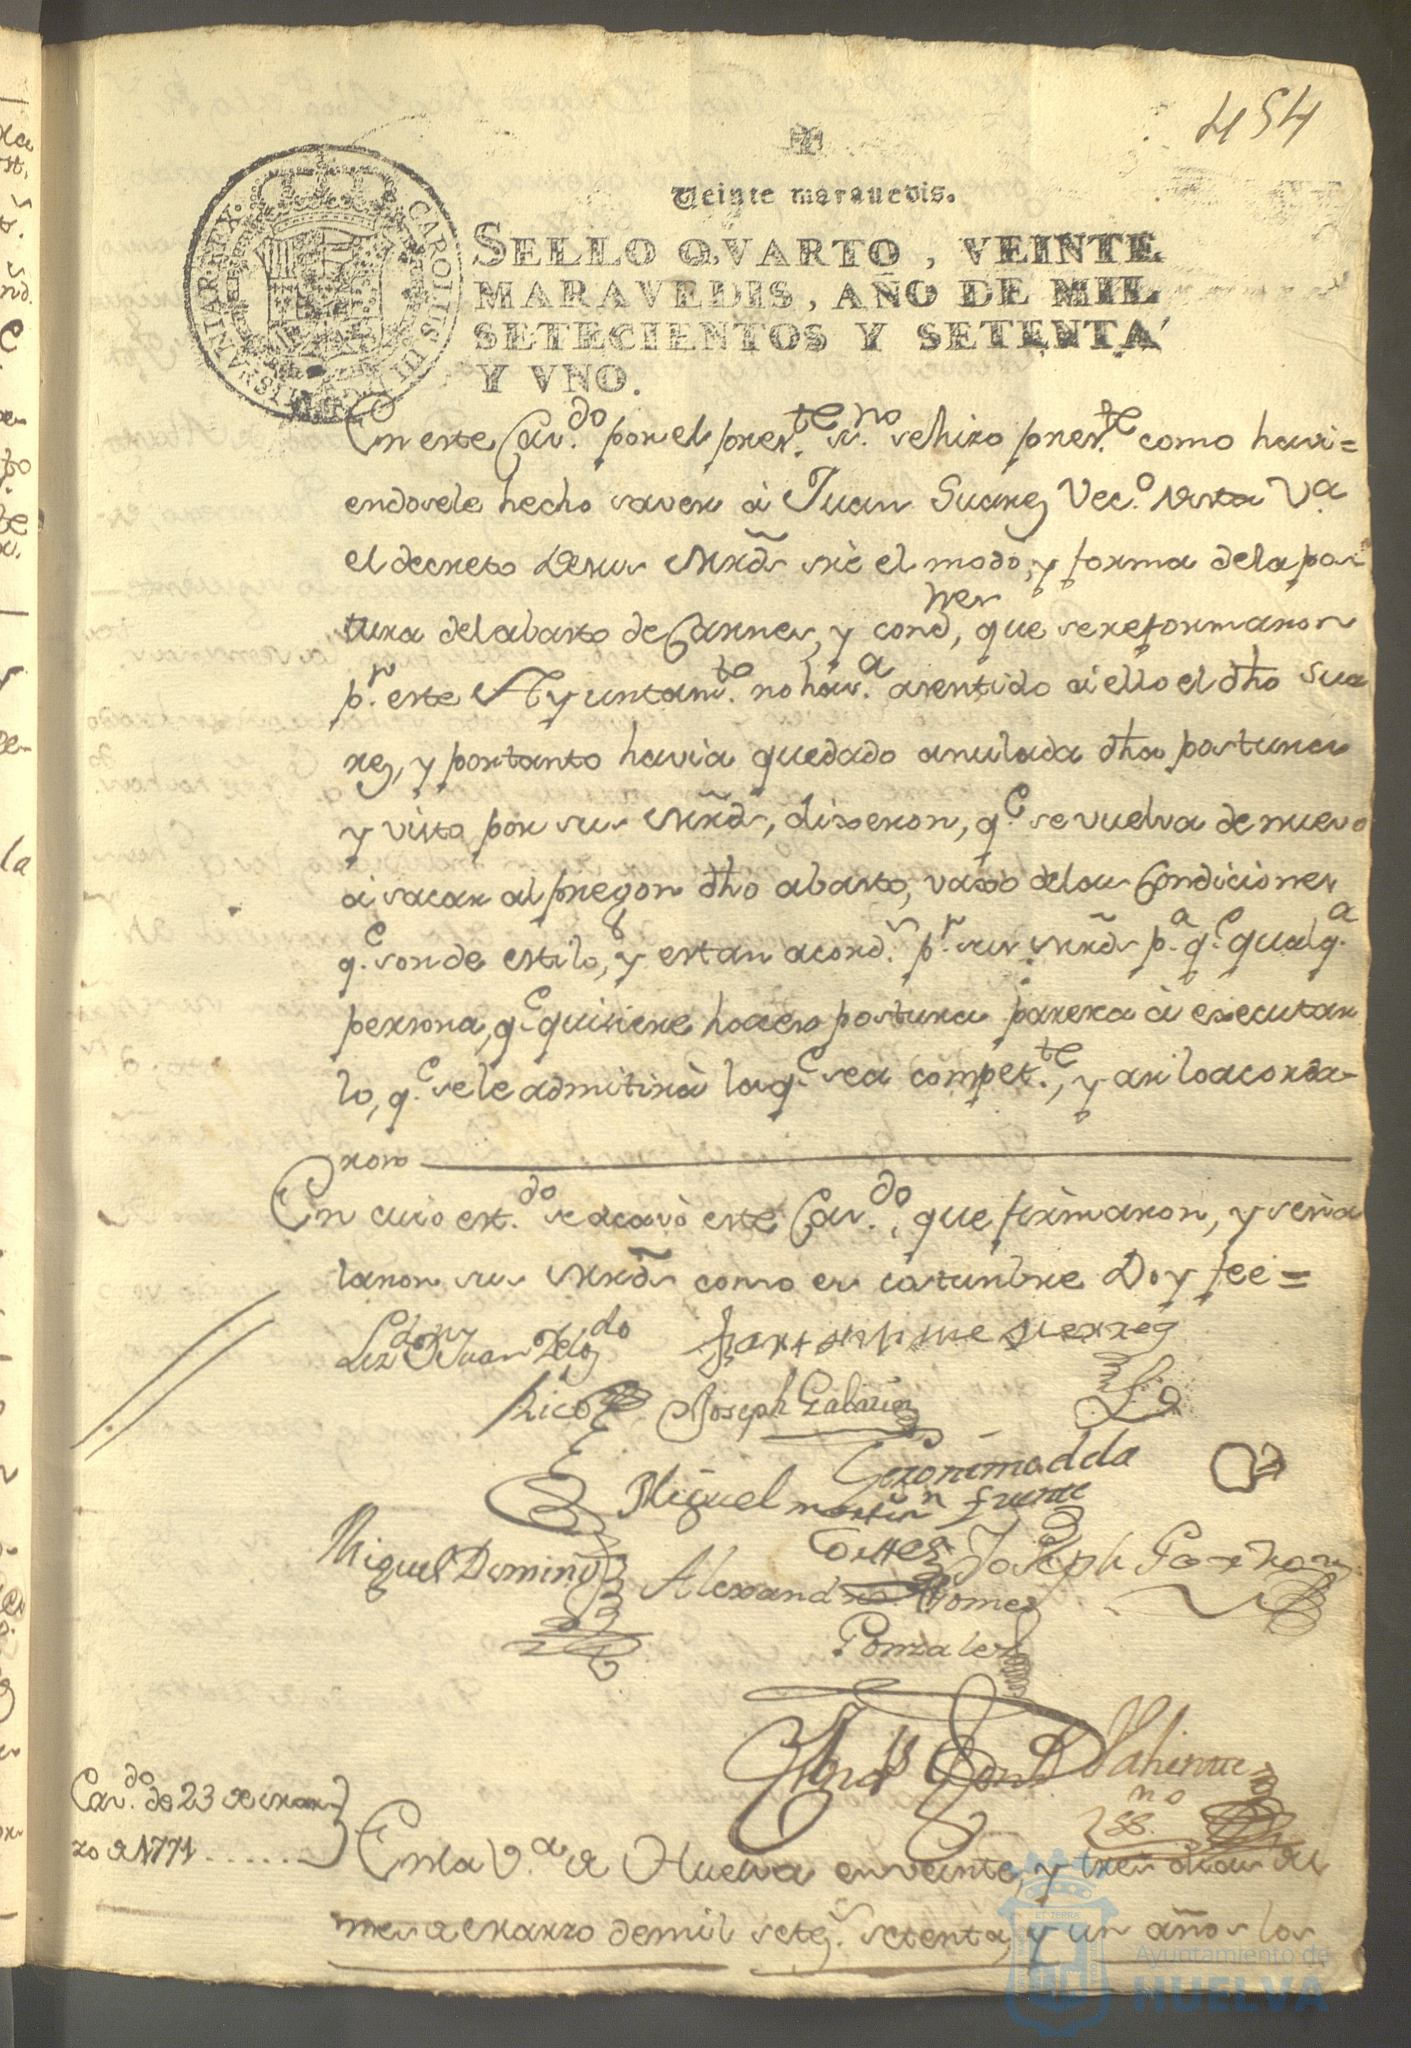 454
Veinte maravedis.
SELLO QVARTO, VEINTE
MARAVEDIS, AÑO DE MIL
SETECIENTOS Y SETENTA
Y VNO.
CAROLUS III D G HISPANIAR REX
En este Cav.do por el pres.te ss.no se hizo pres.te como havi=
endosele hecho saver à Juan Suarez Vec.o desta V.a
el decreto de sus Mrds sre el modo, y forma de la pos
tura del abasto de Carnes, y condnes, que se reformaron
pr. este Ayuntamto. no hav.a asentido à ello el dho Sua
rez, y por tanto havia quedado anulada dha postura
y visto por sus Mrds, dixeron, q.e se vuelva de nuevo
à sacar al pregon dho abasto, vaxo de las Condiciones
q.e son de estilo, y estan acord.s p.r sus Mrds p.a q.e qualq.a
persona, q.e quisiere hacer postura paresca à executar
lo, q.e se le admitirà la q.e sea compet.te, y asi lo acorda-
ron
En cuio est.do se acavò este Cav.do, que firmaron, y seña
laron sus Mrds como es costumbre Doy fee=
Lizdo Dn Juan Delgdo
Rico
Joseph Gabarion
Geronimo de la
fuente
Miguel Martin
Torres
Miguel Doming
Alexandro Gomez
Gonzalez
Joseph
Cav.do de 23 de Mar-
zo de 1771......
En la V.a de Huelva en veinte, y tres dias del
mes de Marzo de mil setez.s setenta, y un años los
Ayuntamiento de
HUELVA